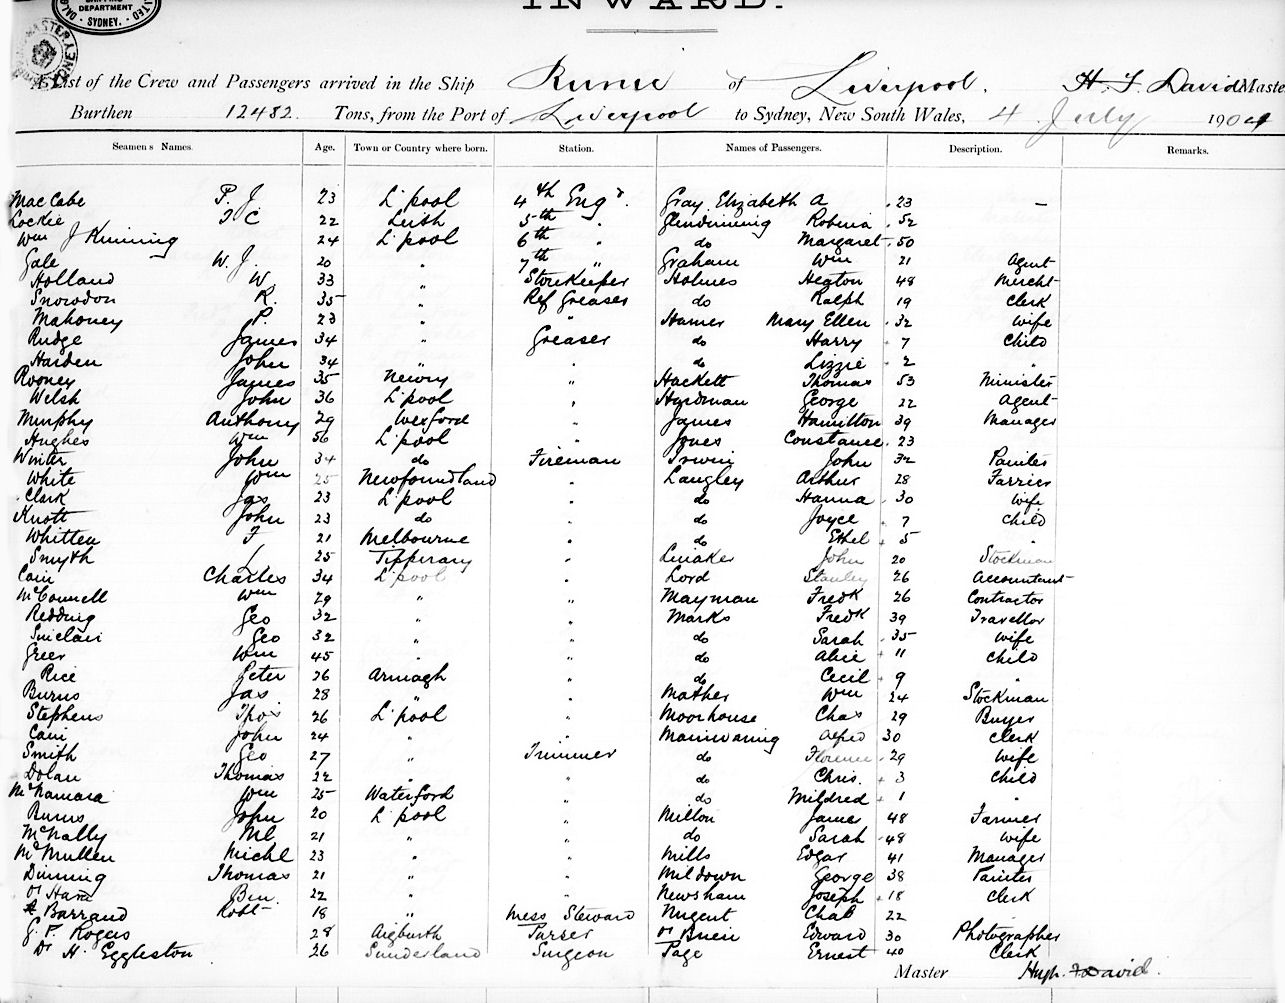 DEPARTMENT
SYDNEY.
INWARD.
A List of the Crew and Passengers arrived in the Ship Runic of Liverpool. H. F. David Maste
Burthen 12482. Tons, from the Port of Liverpool to Sydney, New South Wales, 4 July 1904
Seamens Names. Age. Town or Country where born. Station. Names of Passengers. Description. Remarks.
MacCabe P. J 23 L'pool 4th Engr. Gray Elizabeth A 23 —
Lockie J C 22 Leith 5th " Glendinning Robina 52
Wm J Kinning 24 L'pool 6th " do Margaret 50
Gale W. J. 20 " 7th " Graham Wm 21 Agent
Holland W 33 " Storekeeper Holmes Heaton 48 Mercht
Snowdon R. 35 " Ref Greaser do Ralph 19 Clerk
Mahoney P. 23 " " Hamer Mary Ellen 32 Wife
Rudge James 34 " Greaser do Harry 7 Child
Harden John 34 " " do Lizzie 2 "
Rooney James 35 Newry " Hackett Thomas 53 Minister
Welsh John 36 L'pool " Hardman George 22 Agent
Murphy Anthony 29 Wexford " James Hamilton 39 Manager
Hughes Wm 56 L'pool " Jones Constance 23
Winter John 34 do Fireman Irwin John 32 Painter
White Wm 25 Newfoundland " Langley Arthur 28 Farrier
Clark Jas 23 L'pool " do Hanna 30 Wife
Knott John 23 do " do Joyce 7 Child
Whitten F 21 Melbourne " do Ethel 5 "
Smyth J 25 Tipperary " Linaker John 20 Stockman
Cain Charles 34 L'pool " Lord Stanley 26 Accountant
McConnell Wm 29 " " Mayman Fredk 26 Contractor
Redding Geo 32 " " Marks Fredk 39 Travellor
Sinclair Geo 32 " " do Sarah 35 Wife
Greer Wm 45 " " do Alice 11 Child
Rice Peter 26 Armagh " do Cecil 9 "
Burns Jas 28 " " Mather Wm 24 Stockman
Stephens Thos 26 L'pool " Moorhouse Chas 29 Buyer
Cain John 24 " " Mainwaring Alfred 30 Clerk
Smith Geo 27 " Trimmer do Florence 29 Wife
Dolan Thomas 22 " " do Chris. 3 Child
McNamara Wm 25 Waterford " do Mildred 1 "
Burns John 20 L'pool " Milton James 48 Farmer
McNally Ml 21 " " do Sarah 48 Wife
McMullen Michl 23 " " Mills Edgar 41 Manager
Dinning Thomas 21 " " Mildown George 38 Painter
O'Hara Ben. 22 " " Newsham Joseph 18 Clerk
Barrand Robt 18 " Mess Steward Nugent Chas 22
G. P. Rogers 28 Aigburth Purser O'Brien Edward 30 Photographer
Dr H. Eggleston 26 Sunderland Surgeon Page Ernest 40 Clerk
Master Hugh F David.